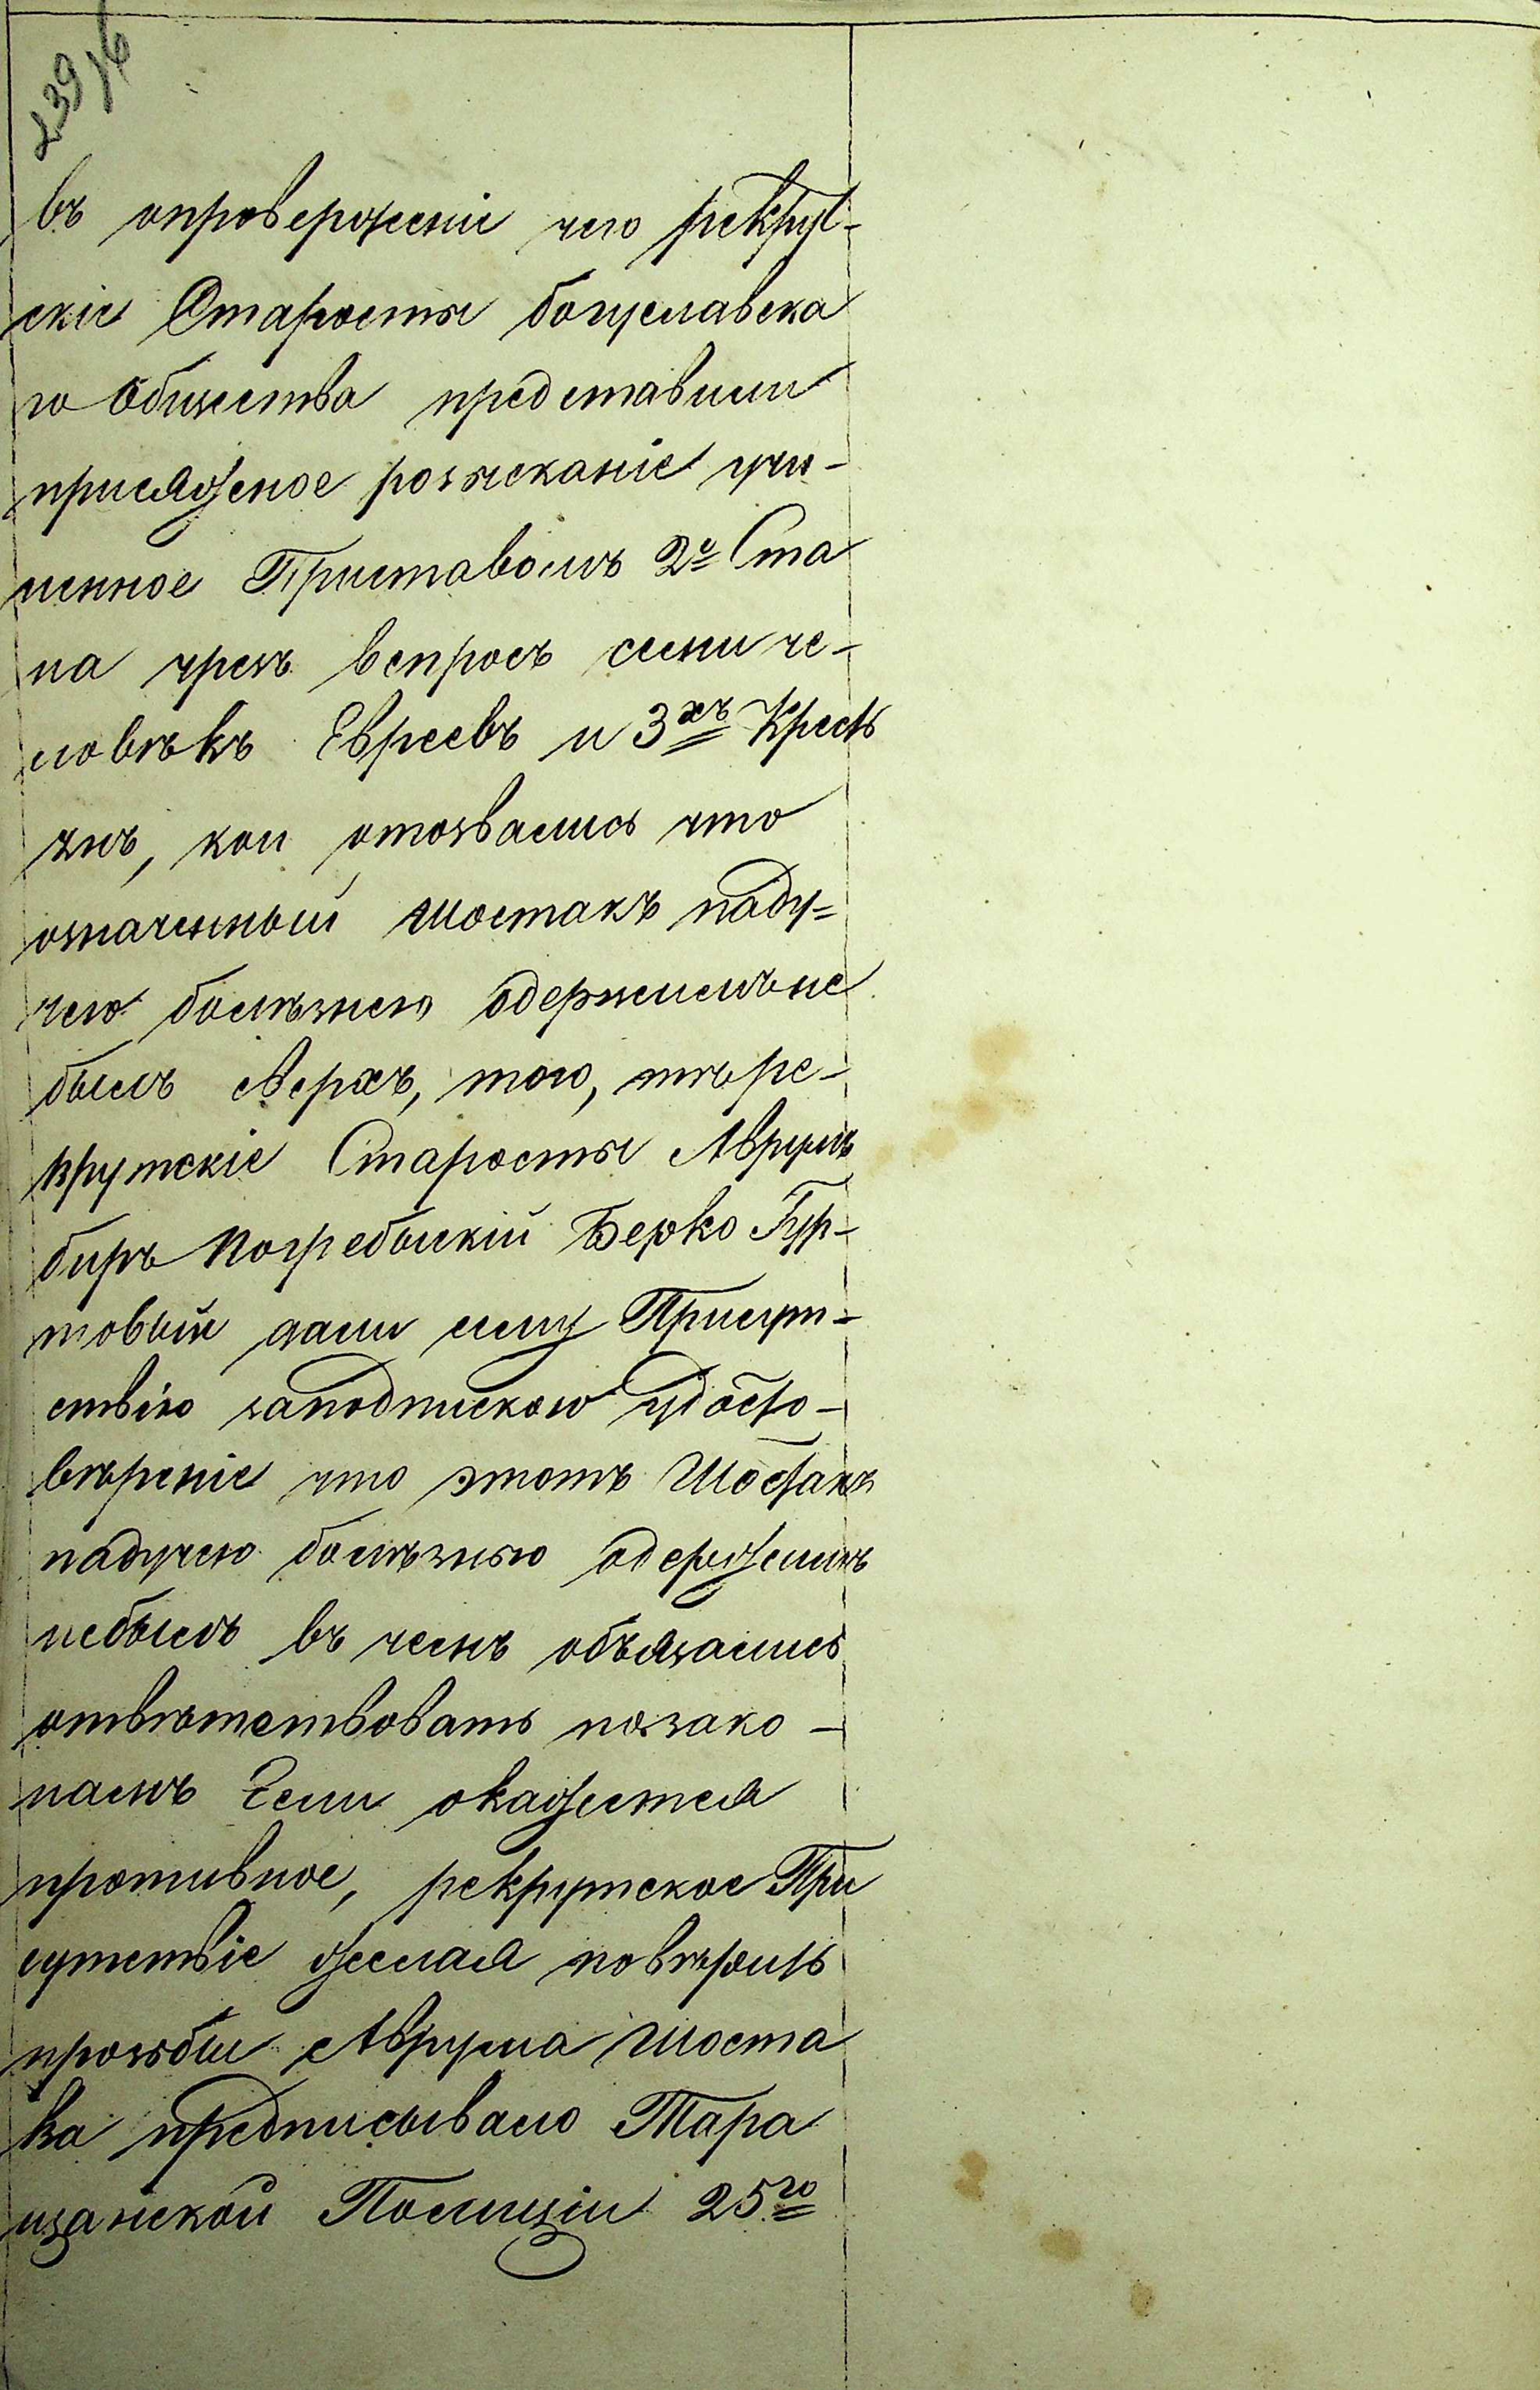 239/6
въ опроверженіе чего рекрут-
скіе Старосты богуславска
го Общества представили
присяжное розысканіе учи-
ненное Приставомъ 2º Ста
на чрезъ вспросъ семи че-
ловѣкъ Евреевъ и 3хъ Кресть
янъ, кои отозвались что
означенный Шостакъ паду-
чею болѣзнею одержимъ не
былъ сверхъ, того, тѣ ре-
крутскіе Старосты Аврумъ
биръ Погребыскій Берко Гур-
товый дали сему Присут-
ствію заподпискою удосто-
вѣреніе что этотъ Шостакъ
падучею болѣзнью одержимъ
небылъ въ чемъ объязались
отвѣтствовать позако-
намъ Если окажется
противное, рекрутское При
сутствіе желая повѣрить
прозьбы Аврума Шоста
ка предписывало Тара
щанской Полиціи 25го